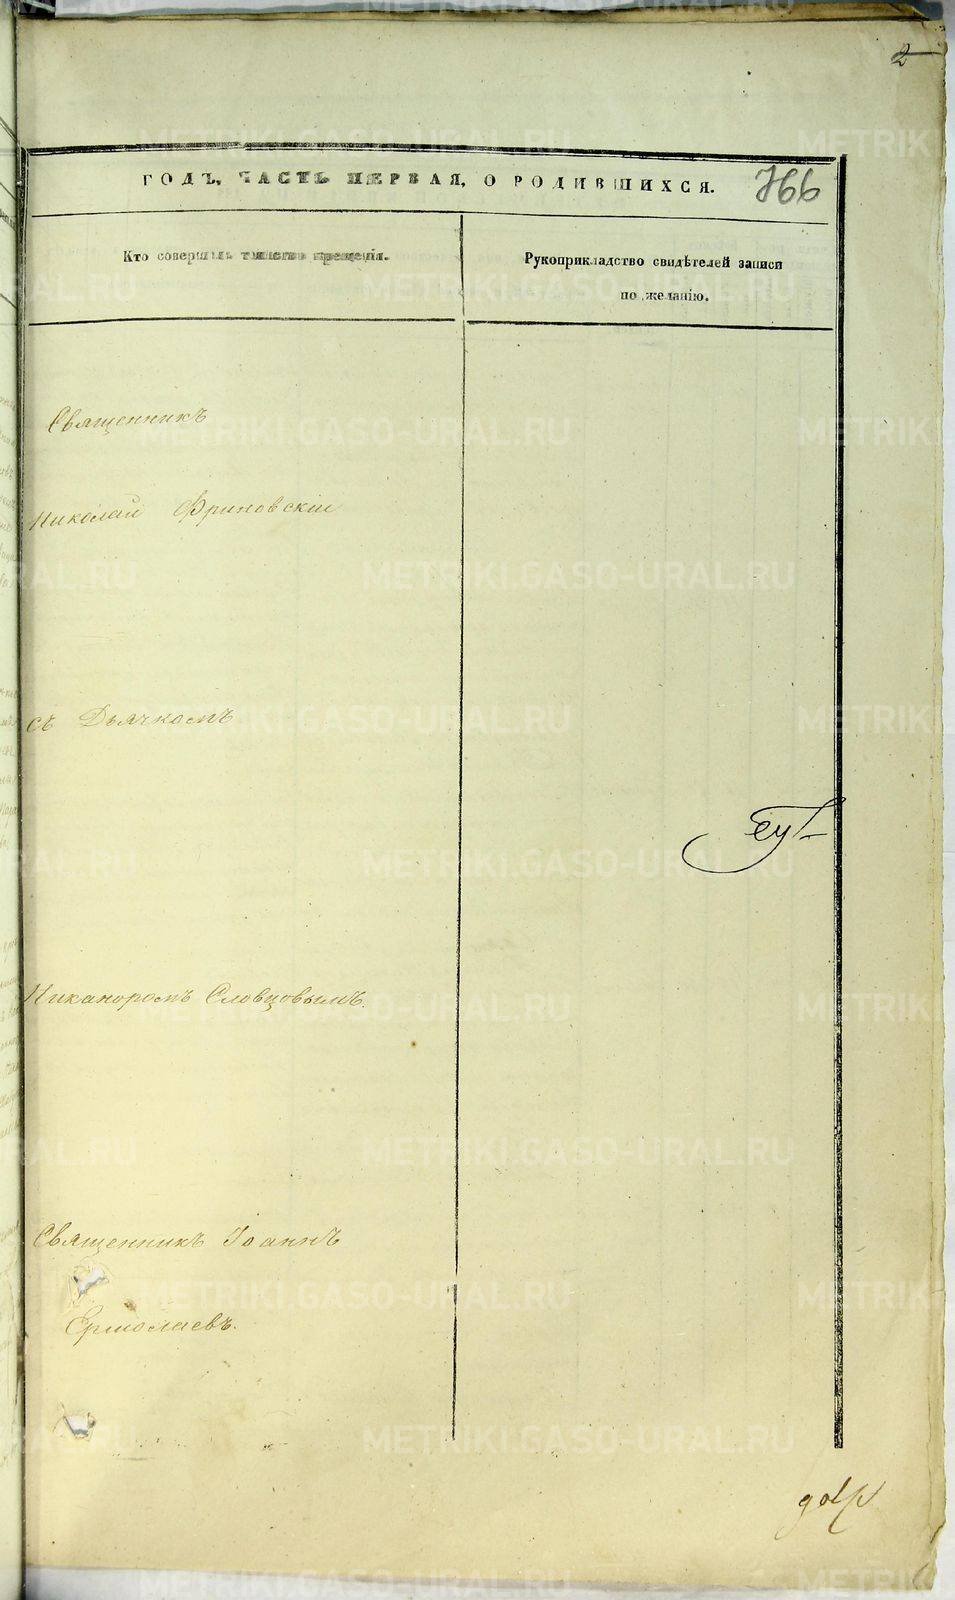 2
ГОДЪ, ЧАСТЬ ПЕРВАЯ, О РОДИВШИХСЯ.
766
Кто совершалъ таинство крещенія.
Рукоприкладство свидѣтелей записи
по желанію.
Священникъ
Николай Фриновскій
съ Дьячкомъ
Никаноромъ Словцовымъ.
Священникъ Іоаннъ
Ермолаевъ.
METRIKI.GASO-URAL.RU